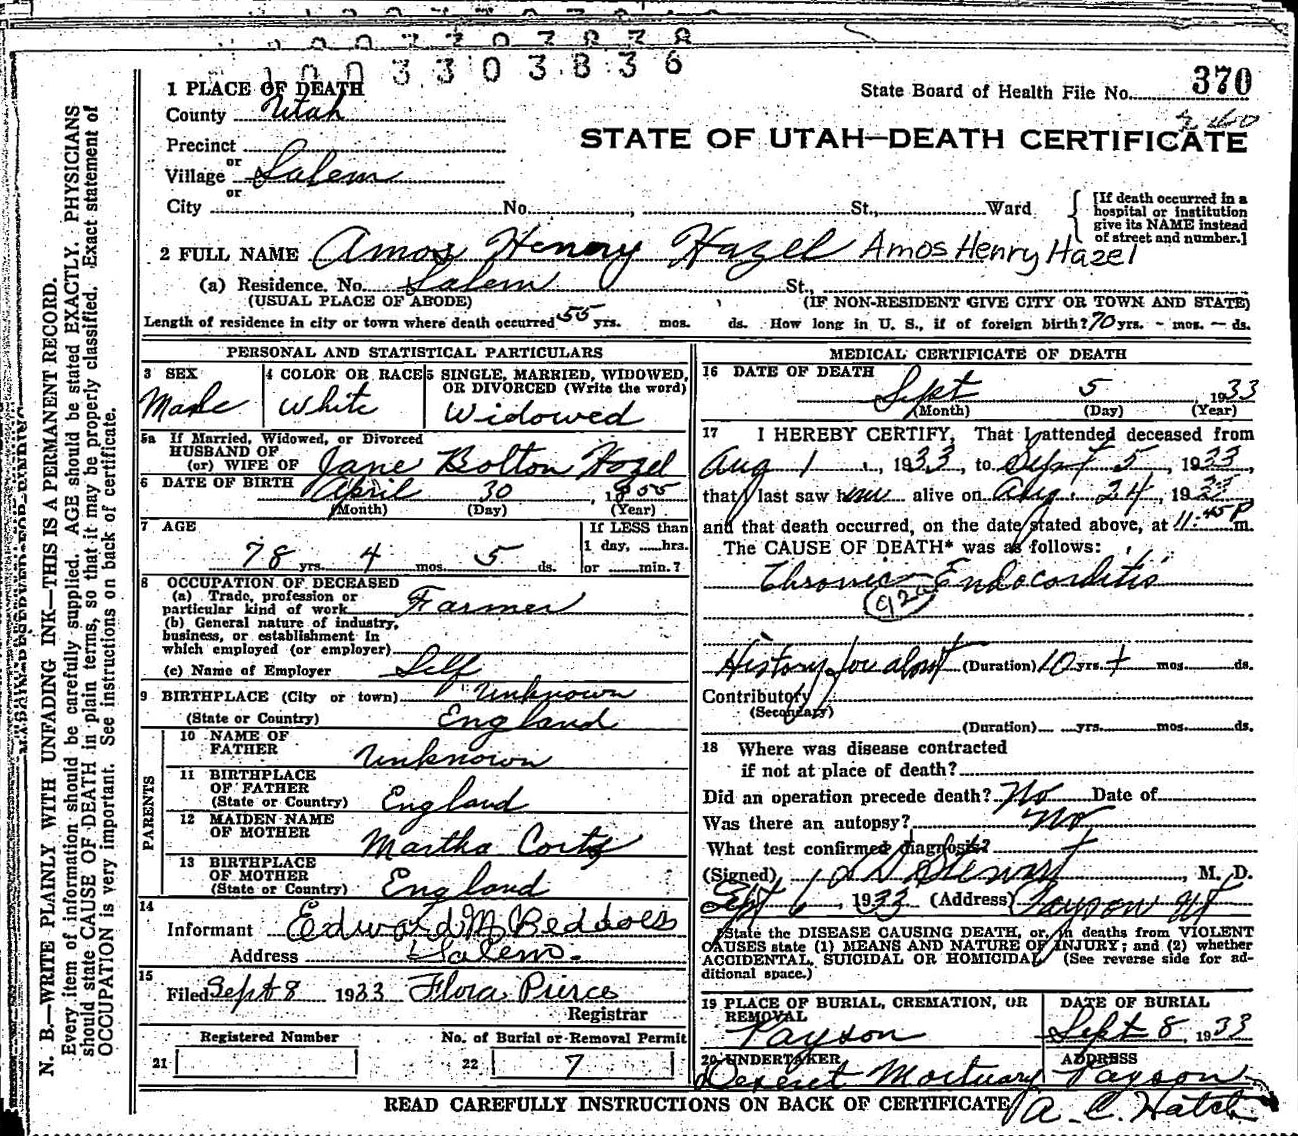 1003303836
370
State Board of Health File No.
STATE OF UTAH—DEATH CERTIFICATE
1 PLACE OF DEATH
County Utah
Precinct
or
Village Salem
or
City No. , St., Ward
[If death occurred in a
hospital or institution
give its NAME instead
of street and number.]
2 FULL NAME Amos Henry Hazel Amos Henry Hazel
(a) Residence. No. Salem St.,
(USUAL PLACE OF ABODE) (IF NON-RESIDENT GIVE CITY OR TOWN AND STATE)
Length of residence in city or town where death occurred 55 yrs. mos. ds. How long in U. S., if of foreign birth? 70 yrs. - mos. - ds.
PERSONAL AND STATISTICAL PARTICULARS
3 SEX
Male
4 COLOR OR RACE
White
5 SINGLE, MARRIED, WIDOWED,
OR DIVORCED (Write the word)
Widowed
5a If Married, Widowed, or Divorced
HUSBAND OF
(or) WIFE OF Jane Bolton Hazel
6 DATE OF BIRTH April 30, 1855
(Month) (Day) (Year)
7 AGE
78 yrs. 4 mos. 5 ds.
If LESS than
1 day, hrs.
or min.?
8 OCCUPATION OF DECEASED
(a) Trade, profession or
particular kind of work Farmer
(b) General nature of industry,
business, or establishment in
which employed (or employer)
(c) Name of Employer Self
9 BIRTHPLACE (City or town) Unknown
(State or Country) England
PARENTS
10 NAME OF
FATHER Unknown
11 BIRTHPLACE
OF FATHER
(State or Country) England
12 MAIDEN NAME
OF MOTHER Martha
13 BIRTHPLACE
OF MOTHER
(State or Country) England
14
Informant Edward M Beddoes
Address Salem.
15
Filed Sept 8 1933 Flora Pierce
Registrar
Registered Number
21
No. of Burial or Removal Permit
22 7
MEDICAL CERTIFICATE OF DEATH
16 DATE OF DEATH
Sept 5, 1933
(Month) (Day) (Year)
17 I HEREBY CERTIFY, That I attended deceased from
Aug 1, 1933, to Sept 5, 1933,
that I last saw him alive on Aug. 24, 1933
and that death occurred, on the date stated above, at 11:45 P m.
The CAUSE OF DEATH* was as follows:
Chronic Endocarditis
92a
History for about (Duration) 10 yrs. + mos. ds.
Contributory
(Secondary)
(Duration) yrs. mos. ds.
18 Where was disease contracted
if not at place of death?
Did an operation precede death? No Date of
Was there an autopsy? No
What test confirmed diagnosis?
(Signed) L D Stewart, M. D.
Sept 6, 1933 (Address) Payson Ut
*State the DISEASE CAUSING DEATH, or, in deaths from VIOLENT
CAUSES state (1) MEANS AND NATURE OF INJURY; and (2) whether
ACCIDENTAL, SUICIDAL OR HOMICIDAL (See reverse side for ad-
ditional space.)
19 PLACE OF BURIAL, CREMATION, OR
REMOVAL
Payson
DATE OF BURIAL
Sept 8, 1933
20 UNDERTAKER
Deseret Mortuary
ADDRESS
Payson
A. C. Hatch
READ CAREFULLY INSTRUCTIONS ON BACK OF CERTIFICATE
N. B.—WRITE PLAINLY WITH UNFADING INK—THIS IS A PERMANENT RECORD.
Every item of information should be carefully supplied. AGE should be stated EXACTLY. PHYSICIANS
should state CAUSE OF DEATH in plain terms, so that it may be properly classified. Exact statement of
OCCUPATION is very important. See instructions on back of certificate.